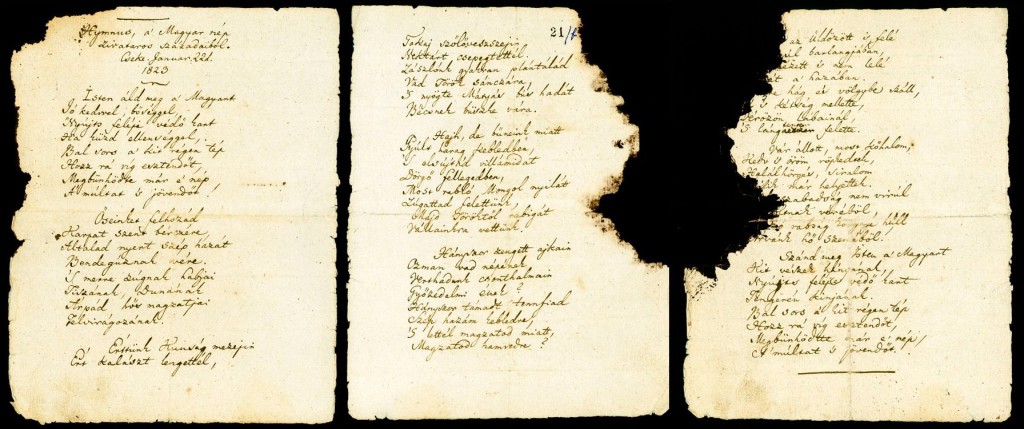 Hymnus, a' Magyar nép
zivataros századaiból.
Cseke Januar. 22d.
1823
Isten áldd meg a' Magyart
Jó kedvvel, bőséggel,
Nyújts feléje védő kart
Ha küzd ellenséggel,
Bal sors a' kit régen tép
Hozz rá víg esztendőt,
Megbűnhődte már e' nép
A' múltat 's jövendőt!
Őseinket felhozád
Kárpát szent bérczére,
Általad nyert szép hazát
Bendegúznak vére.
'S merre zúgnak habjai
Tiszának, Dunának,
Árpád hős magzatjai
Felvirágozának.
Értünk Kunság mezein
Ért kalászt lengettél,
21/
Tokaj szőlővesszein
Nektárt csepegtettél.
Zászlónk gyakran plántálád
Vad Török sánczára,
'S nyögte Mátyás bús hadát
Bécsnek büszke vára.
Hajh, de bűneink miatt
Gyúlt harag kebledben,
'S elsújtád villámidat
Dörgő fellegedben,
Most rabló Mongol nyilát
Zúgattad felettünk,
Majd Töröktől rabigát
Vállainkra vettünk.
Hányszor zengett ajkain
Ozman vad népének
Vert hadunk csonthalmain
Győzedelmi ének!
Hányszor támadt tennfiad
Szép hazám kebledre,
'S lettél magzatod miatt
Magzatod hamvvedre?
Üldözött 's felé
barlangjában,
's nem lelé
a' hazában.
hág és völgybe száll,
's kétség mellette,
Vérözön lábainál,
'S lángtenger felette.
Vár állott, most kőhalom,
Kedv 's öröm röpkedtek,
Halálhörgés, siralom
már helyettek.
szabadság nem virúl
véréből,
rabság könnye hull
hő szeméből.
Szánd meg Isten a' Magyart
Kit vészek hányának,
Nyújts feléje védő kart
Tengerén kínjának.
Bal sors a' kit régen tép
Hozz rá víg esztendőt,
Megbűnhődte már e' nép
A' múltat 's jövendőt!